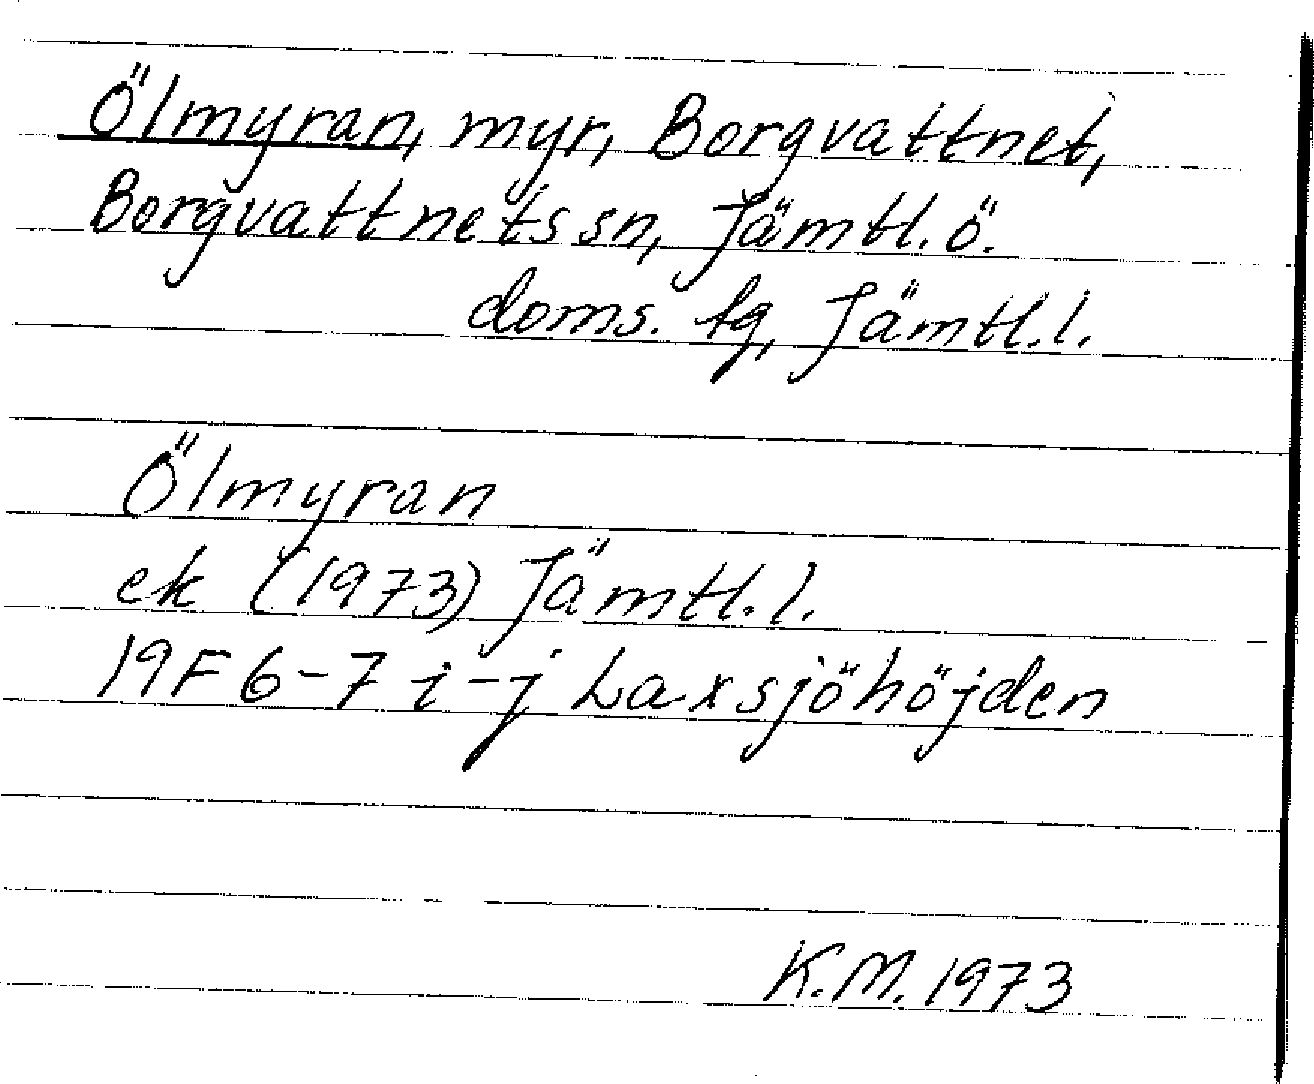 Ölmyran, myr, Borgvattnet,
Borgvattnets sn, Jämtl. ö.
doms. tg, Jämtl. l.
Ölmyran
ek (1973) Jämtl. l.
19F 6-7 i-j Laxsjöhöjden
K.M. 1973